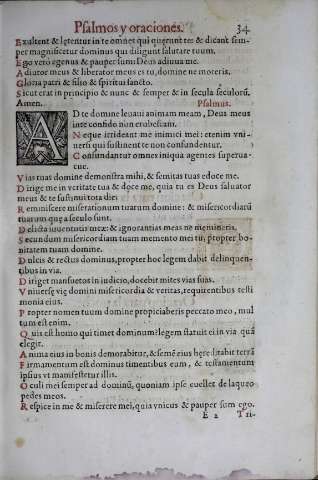 Psalmos y oraciones. 34
Exultent & lętentur in te omnes qui quęrunt te: & dicant sem-
per magnificetur dominus qui diligunt salutare tuum.
Ego vero egenus & pauper sum: Deus adiuua me.
Adiutor meus & liberator meus es tu, domine ne moreris.
Gloria patri & filio & spiritui sancto.
Sicut erat in principio & nunc & semper & in secula seculorū.
Amen. Psalmus.
AD te domine leuaui animam meam, Deus meus
in te confido non erubescam.
Neque irrideant me inimici mei: etenim vni-
uersi qui sustinent te non confundentur.
Confundantur omnes iniqua agentes superua-
cue.
Vias tuas domine demonstra mihi, & semitas tuas edoce me.
Dirige me in veritate tua & doce me, quia tu es Deus saluator
meus & te sustinui tota die.
Reminiscere miserationum tuarum domine: & misericordiarū
tuarum quę a seculo sunt.
Delicta iuuentutis meę: & ignorantias meas ne memineris.
Secundum misericordiam tuam memento mei tu, propter bo-
nitatem tuam domine.
Dulcis & rectus dominus, propter hoc legem dabit delinquen-
tibus in via.
Diriget mansuetos in iudicio, docebit mites vias suas.
Vniuersę vię domini misericordia & veritas, requirentibus testi
monia eius.
Propter nomen tuum domine propiciaberis peccato meo, mul
tum est enim.
Quis est homo qui timet dominum? legem statuit ei in via quā
elegit.
Anima eius in bonis demorabitur, & semē eius hęreditabit terrā
Firmamentum est dominus timentibus eum, & testamentum
ipsius vt manifestetur illis.
Oculi mei semper ad dominū, quoniam ipse euellet de laqueo
pedes meos.
Respice in me & miserere mei, quia vnicus & pauper sum ego.
E 2 Tri-